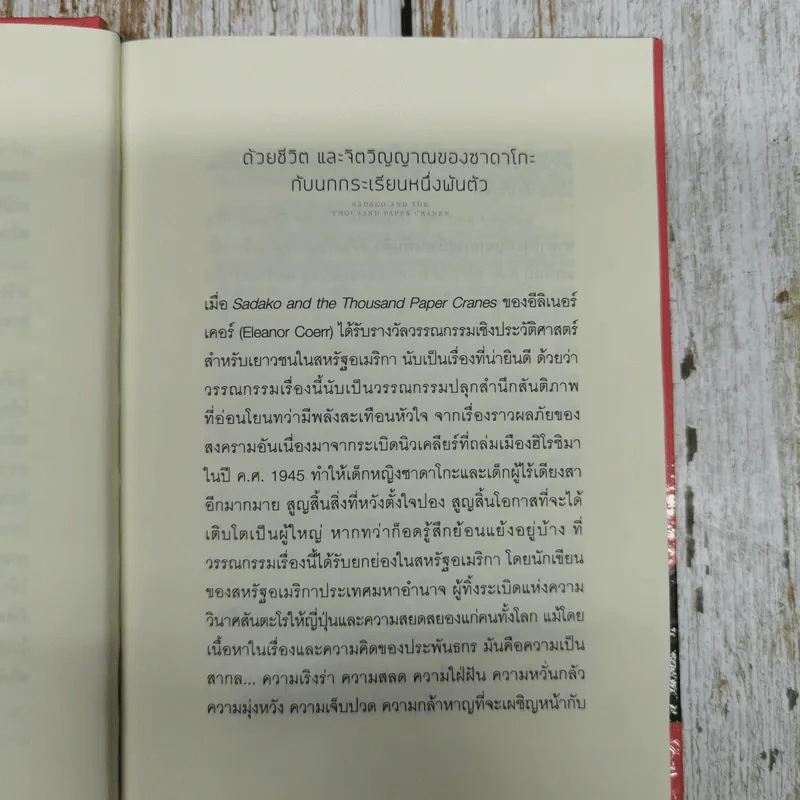 ด้วยชีวิต และจิตวิญญาณของซาดาโกะ
กับนกกระเรียนหนึ่งพันตัว
SADAKO AND THE
THOUSAND PAPER CRANES
เมื่อ Sadako and the Thousand Paper Cranes ของอีลิเนอร์
เคอร์ (Eleanor Coerr) ได้รับรางวัลวรรณกรรมเชิงประวัติศาสตร์
สำหรับเยาวชนในสหรัฐอเมริกา นับเป็นเรื่องที่น่ายินดี ด้วยว่า
วรรณกรรมเรื่องนี้นับเป็นวรรณกรรมปลุกสำนึกสันติภาพ
ที่อ่อนโยนทว่ามีพลังสะเทือนหัวใจ จากเรื่องราวผลภัยของ
สงครามอันเนื่องมาจากระเบิดนิวเคลียร์ที่ถล่มเมืองฮิโรชิมา
ในปี ค.ศ. 1945 ทำให้เด็กหญิงซาดาโกะและเด็กผู้ไร้เดียงสา
อีกมากมาย สูญสิ้นสิ่งที่หวังตั้งใจปอง สูญสิ้นโอกาสที่จะได้
เติบโตเป็นผู้ใหญ่ หากทว่าก็อดรู้สึกย้อนแย้งอยู่บ้าง ที่
วรรณกรรมเรื่องนี้ได้รับยกย่องในสหรัฐอเมริกา โดยนักเขียน
ของสหรัฐอเมริกาประเทศมหาอำนาจ ผู้ทิ้งระเบิดแห่งความ
วินาศสันตะโรให้ญี่ปุ่นและความสยดสยองแก่คนทั้งโลก แม้โดย
เนื้อหาในเรื่องและความคิดของประพันธกร มันคือความเป็น
สากล... ความเริงร่า ความสลด ความใฝ่ฝัน ความหวั่นกลัว
ความมุ่งหวัง ความเจ็บปวด ความกล้าหาญที่จะเผชิญหน้ากับ